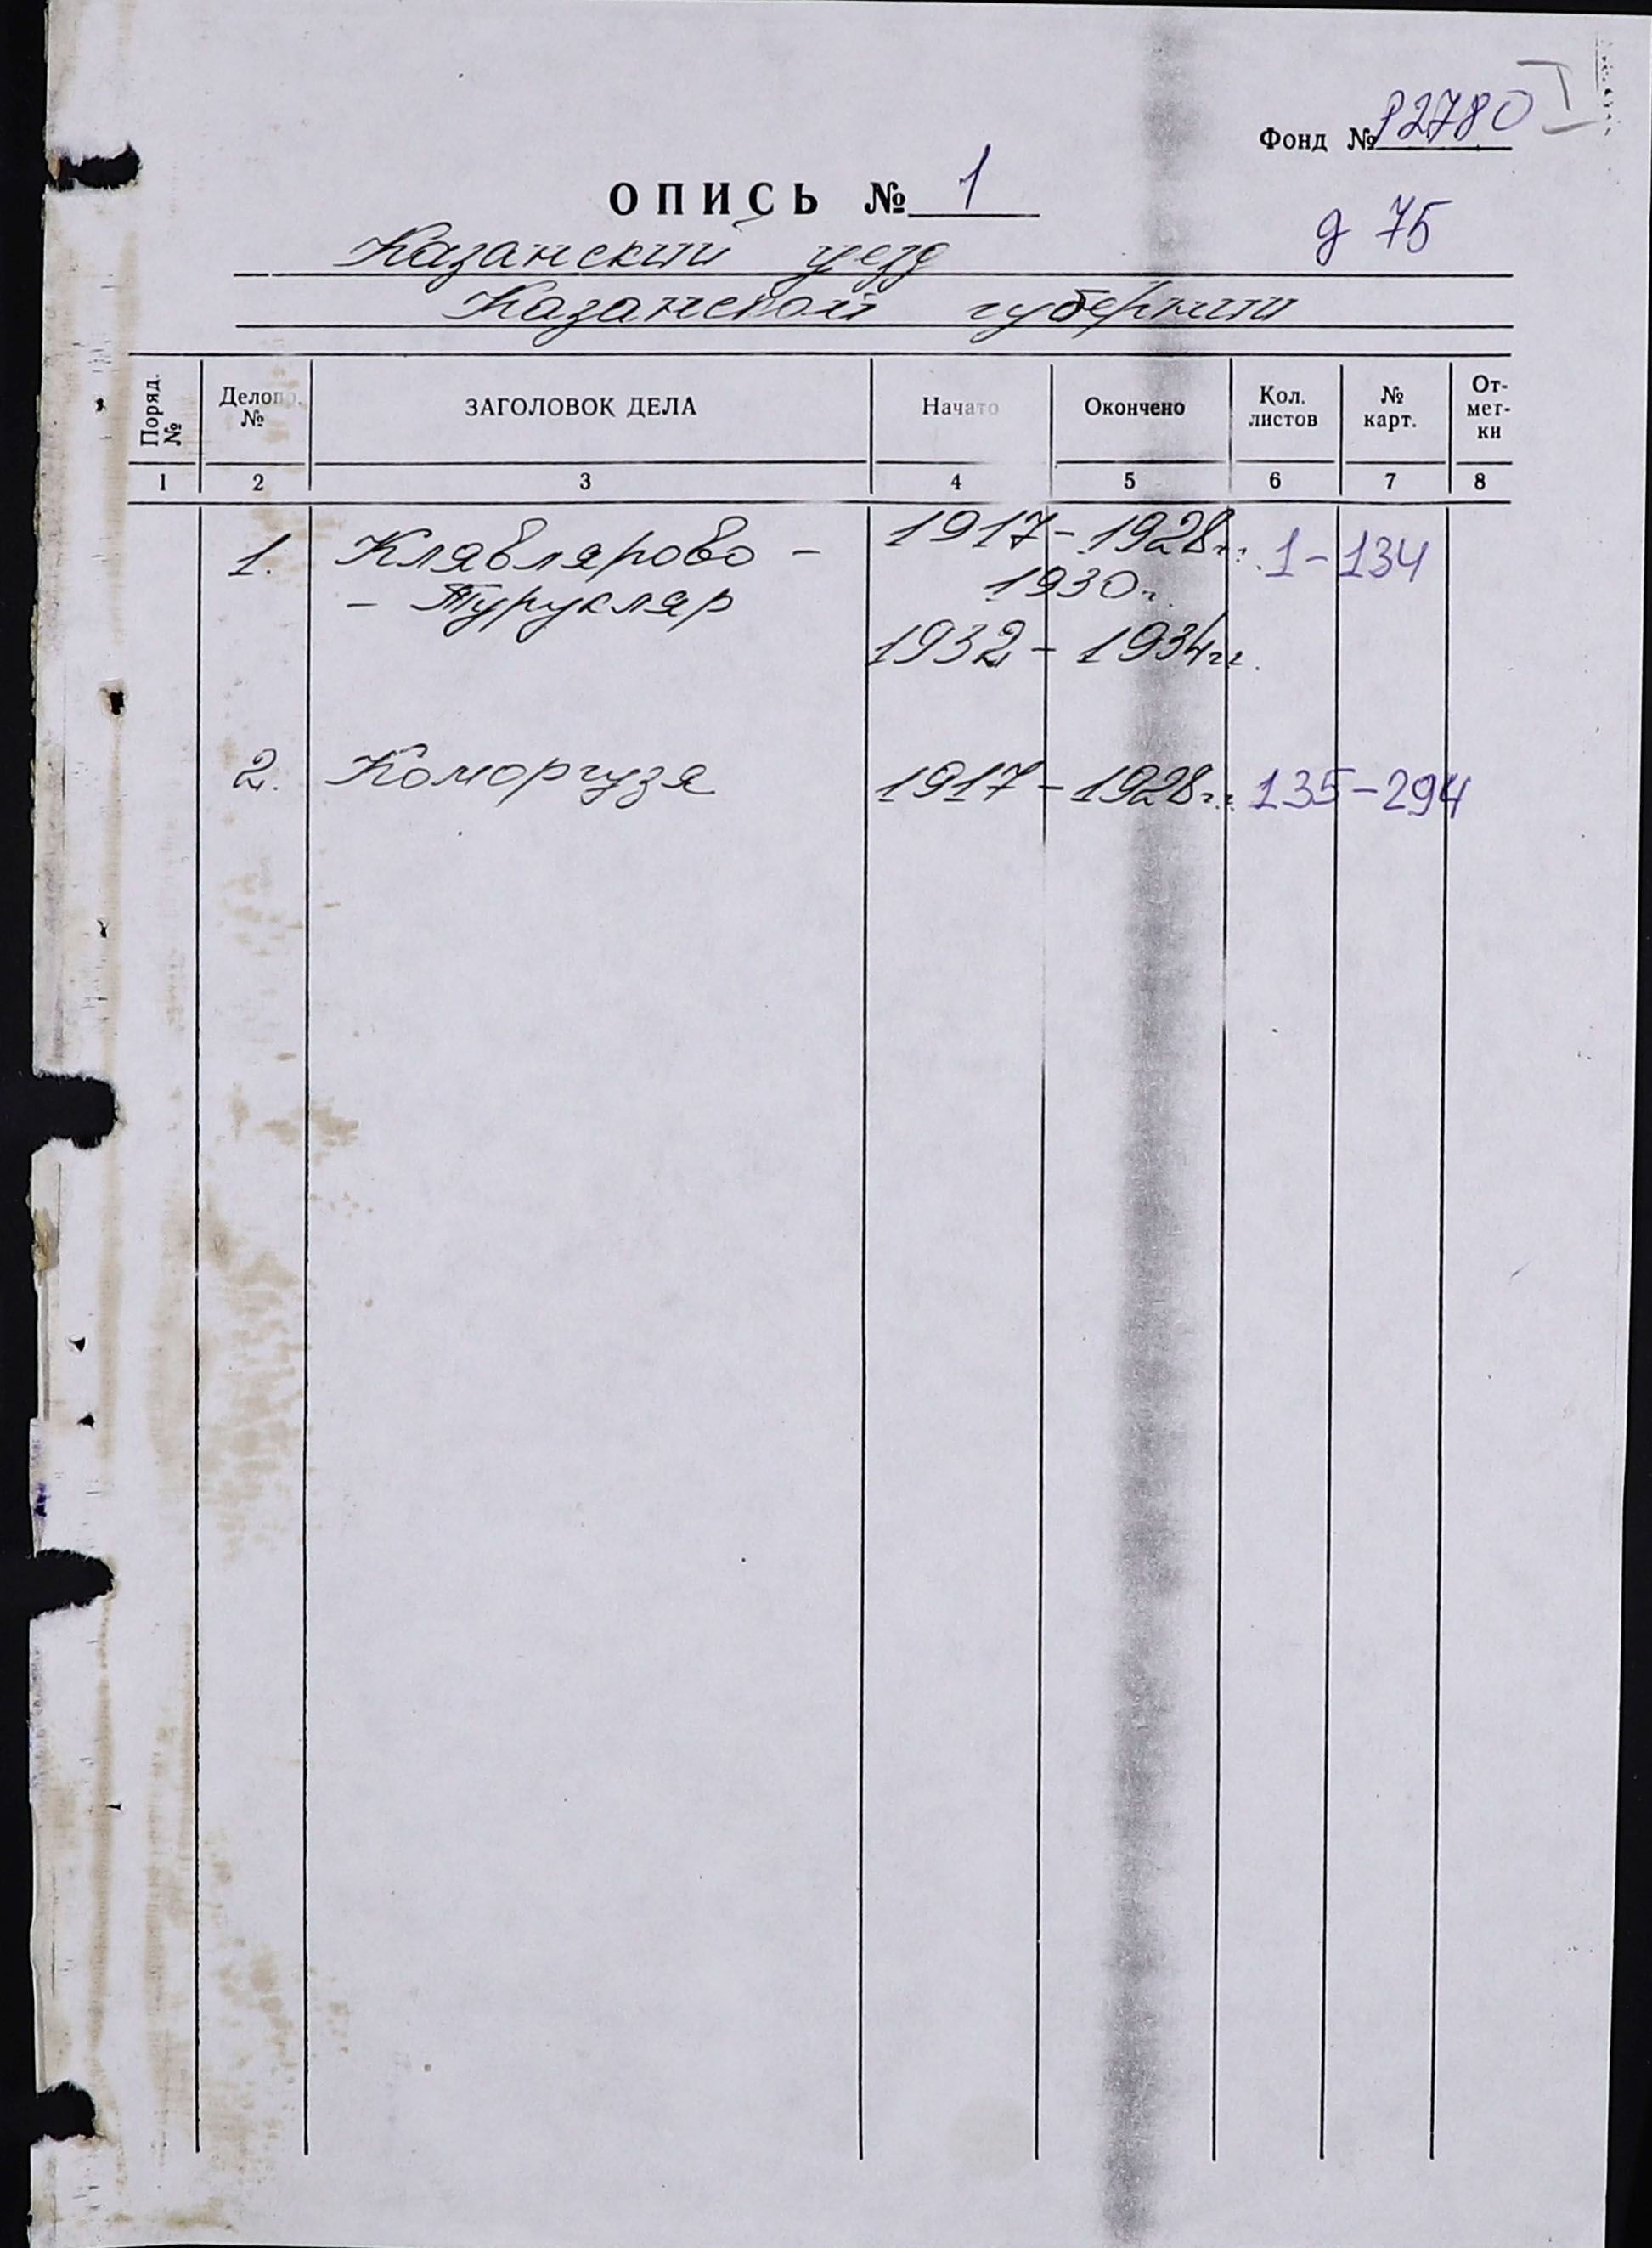 Фонд № Р2780
I
ОПИСЬ № 1
д 75
Казанский уезд
Казанской губернии
Поряд. №
Делопр. №
ЗАГОЛОВОК ДЕЛА
Начато
Окончено
Кол. листов
№ карт.
От-
мет-
ки
1 2 3 4 5 6 7 8
1. Клявлярово - 1917 - 1928гг. 1 - 134
- Турукляр 1930г.
1932 - 1934гг.
2. Коморгузя 1917 - 1928гг. 135 - 294